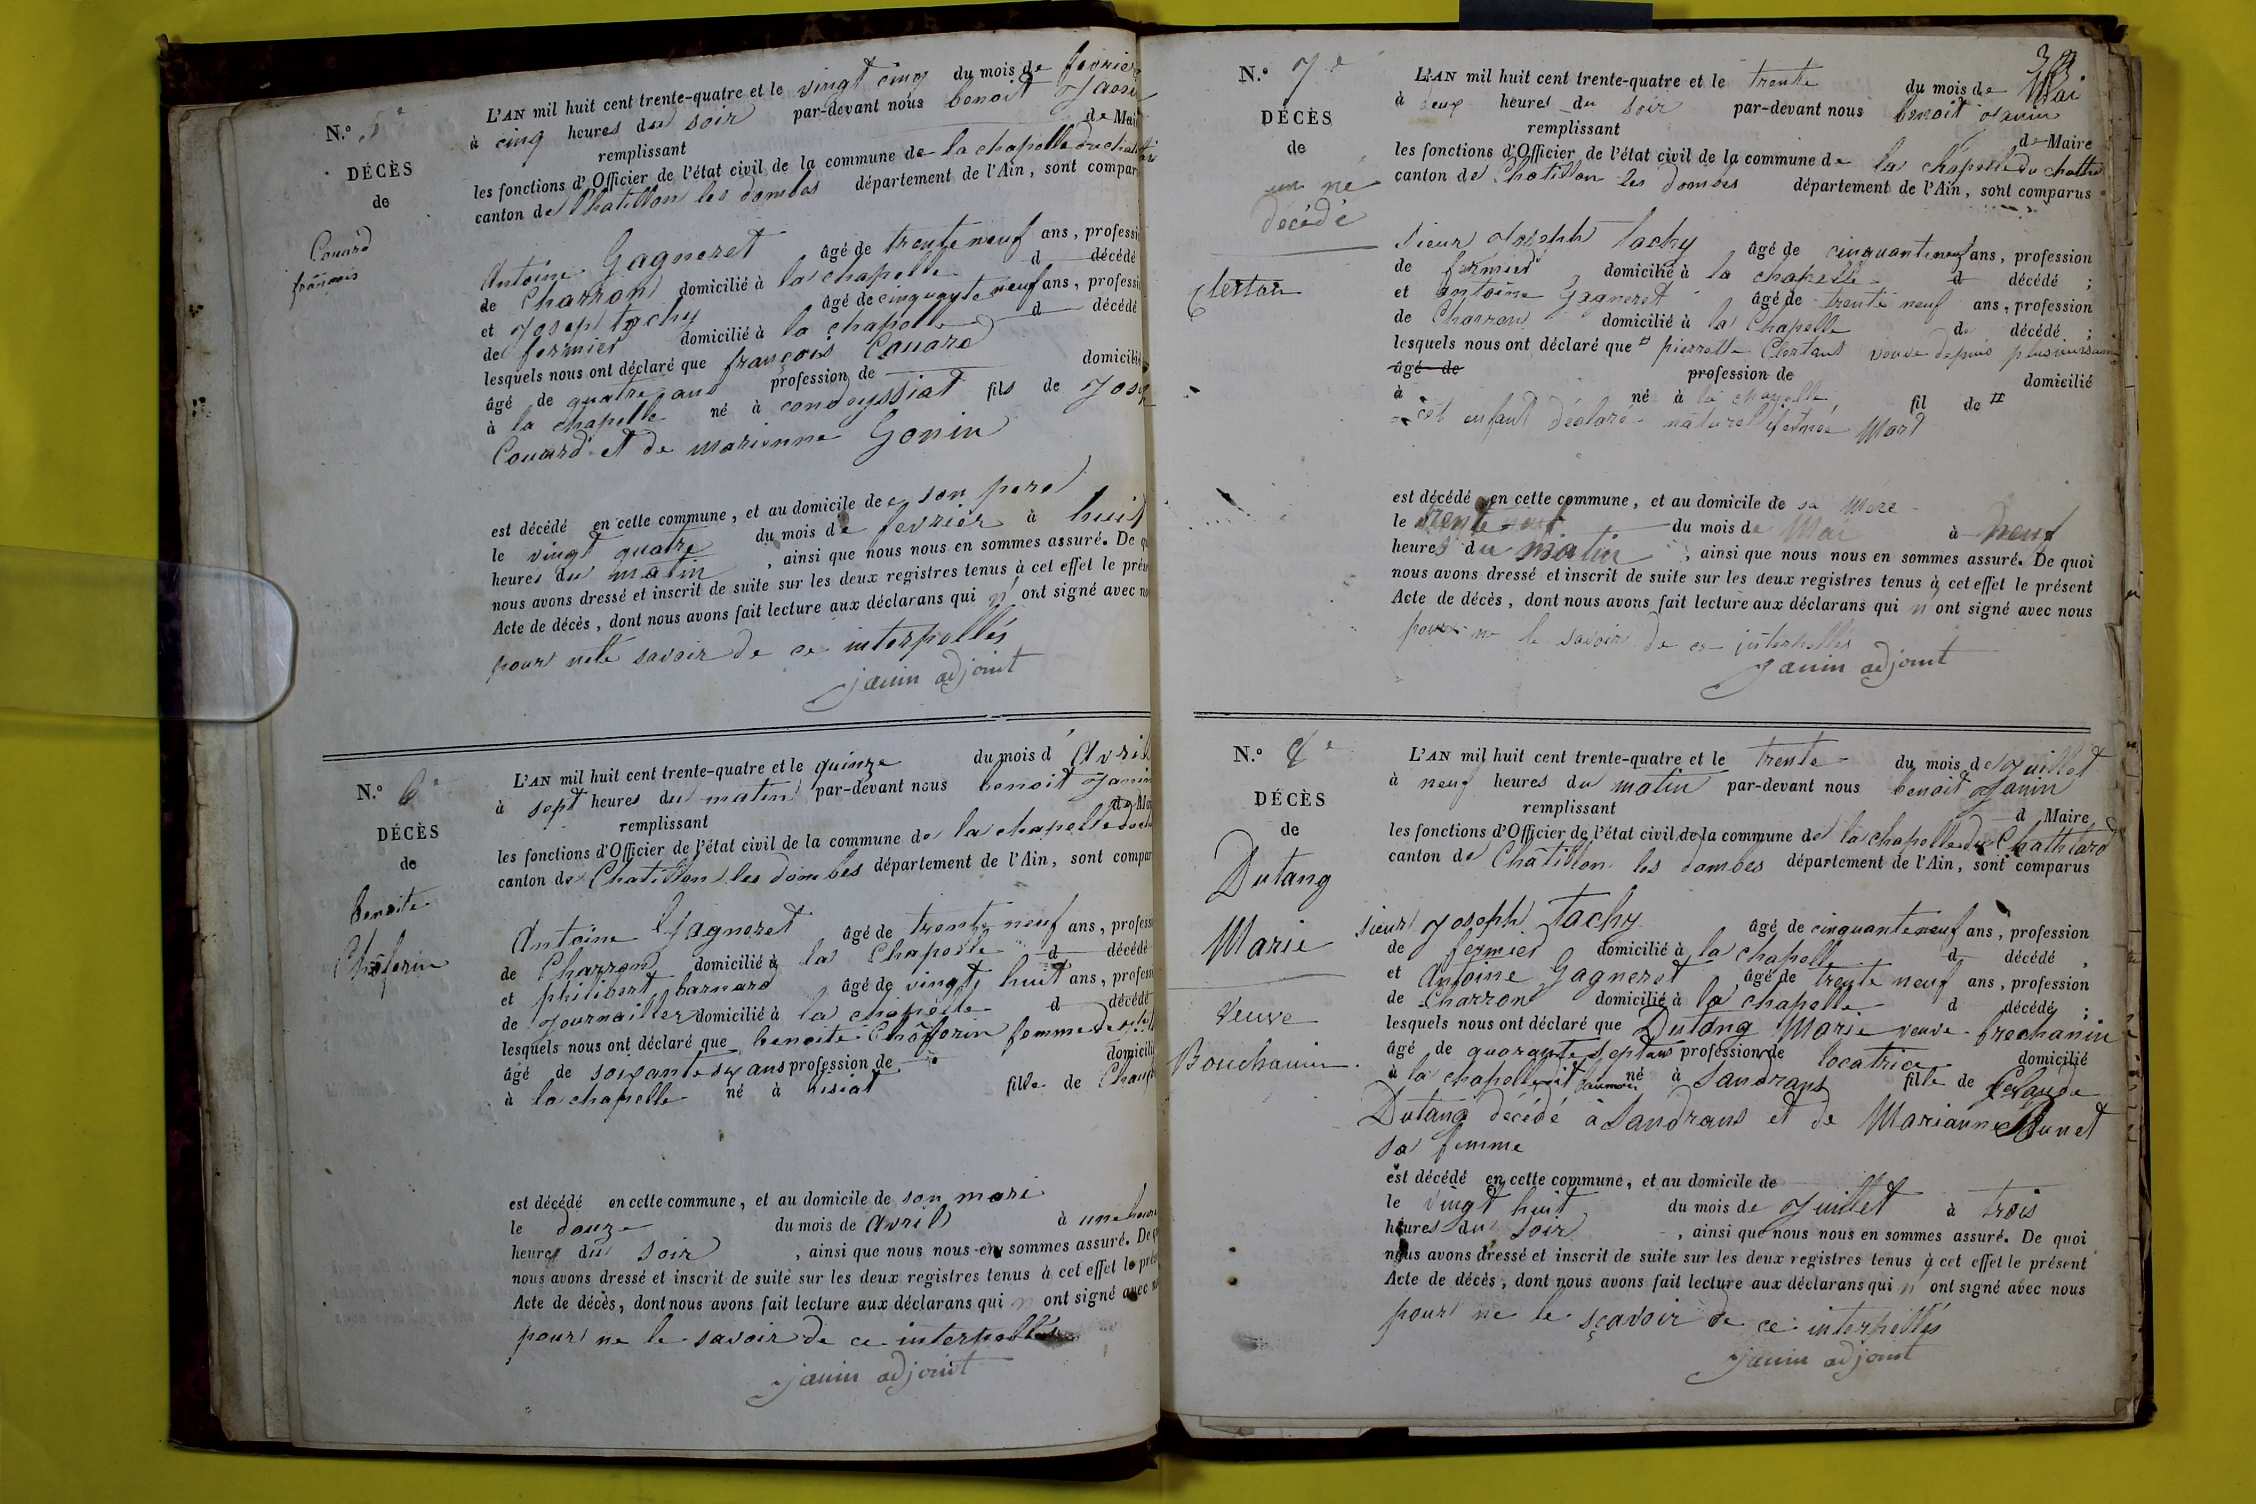 N.° 5e
DÉCÈS
de
Couard
françois
L'AN mil huit cent trente-quatre et le vingt cinq du mois de fevrier
à cinq heures du soir par-devant nous benoit Janin
remplissant de Mai
les fonctions d'Officier de l'état civil de la commune de la chapelle du chat
canton de Chatillon les dombes département de l'Ain, sont compar
Antoine Gagneret âgé de trente neuf ans, professi
de Charron domicilié à la chapelle d décédé
et Joseph tachy âgé de cinquante neuf ans, professi
de fermier domicilié à la chapelle d décédé
lesquels nous ont déclaré que françois Couard
âgé de quatre ans profession de domicilié
à la chapelle né à condeyssiat fils de Jose
Couard et de marienne Gonin
est décédé en cette commune, et au domicile de son pere
le vingt quatre du mois de fevrier à huit
heures du matin, ainsi que nous nous en sommes assuré. De q
nous avons dressé et inscrit de suite sur les deux registres tenus à cet effet le prés
Acte de décès, dont nous avons fait lecture aux déclarans qui n ont signé avec n
pour ne le savoir de ce interpellés
janin adjoint
N.° 6e
DÉCÈS
de
benoite
L'AN mil huit cent trente-quatre et le quinze du mois d'Avril
à sept heures du matin par-devant nous benoit Janin
remplissant
les fonctions d'Officier de l'état civil de la commune de la chapelle du
canton de Chatillon les dombes département de l'Ain, sont compar
Antoine Gagneret âgé de trente neuf ans, profess
de Charron domicilié à la Chapelle d décédé
et philibert barnard âgé de vingt huit ans, profess
de Journaillier domicilié à la chapelle d décédé
lesquels nous ont déclaré que benoite femme de
âgé de soixante six ans profession de domicili
à la chapelle né à fille de
est décédé en cette commune, et au domicile de son mari
le douze du mois de avril à une heure
heures du soir, ainsi que nous nous en sommes assuré. De
nous avons dressé et inscrit de suite sur les deux registres tenus à cet effet le prés
Acte de décès, dont nous avons fait lecture aux déclarans qui n ont signé avec
pour ne le savoir de ce interpellés
janin adjoint
N.° 7e
DÉCÈS
de
un né
décédé
Clertan
L'AN mil huit cent trente-quatre et le trente du mois de Mai
à deux heures du soir par-devant nous benoit Janin
remplissant de Maire
les fonctions d'Officier de l'état civil de la commune de la chapelle du
canton de Chatillon les dombes département de l'Ain, sont comparus
Sieur Joseph tachy âgé de cinquante neuf ans, profession
de fermier domicilié à la chapelle d décédé ;
et antoine Gagneret âgé de trente neuf ans, profession
de Charron domicilié à la Chapelle d décédé ;
lesquels nous ont déclaré que pierrette Clertant veuve depuis plusieurs
âgé de profession de domicilié
à né à la chapelle fil de
cet enfant déclaré naturel Mort
est décédé en cette commune, et au domicile de sa Mere
le trente du mois de Mai à neuf
heures du matin, ainsi que nous nous en sommes assuré. De quoi
nous avons dressé et inscrit de suite sur les deux registres tenus à cet effet le présent
Acte de décès, dont nous avons fait lecture aux déclarans qui n ont signé avec nous
pour ne le savoir de ce interpellés
Janin adjoint
N.° 8e
DÉCÈS
de
Dutang
Marie
Veuve
Bouchanin
L'AN mil huit cent trente-quatre et le trente du mois de Juillet
à neuf heures du matin par-devant nous benoit Janin
remplissant d Maire
les fonctions d'Officier de l'état civil de la commune de la chapelle du Chathiard
canton de Châtillon les dombes département de l'Ain, sont comparus
Sieur Joseph tachy âgé de cinquante neuf ans, profession
de fermier domicilié à la chapelle d décédé ;
et Antoine Gagneret âgé de trente neuf ans, profession
de Charron domicilié à la chapelle d décédé ;
lesquels nous ont déclaré que Dutang Marie veuve
âgé de quarante sept ans profession de locatrice domicilié
à la chapelle né à Sandrans fille de Claude
Dutang décédé à Sandrans et de Marianne
sa femme
est décédé en cette commune, et au domicile de
le vingt huit du mois de Juillet à trois
heures du soir, ainsi que nous nous en sommes assuré. De quoi
nous avons dressé et inscrit de suite sur les deux registres tenus à cet effet le présent
Acte de décès, dont nous avons fait lecture aux déclarans qui n ont signé avec nous
pour ne le sçavoir de ce interpellés
Janin adjoint